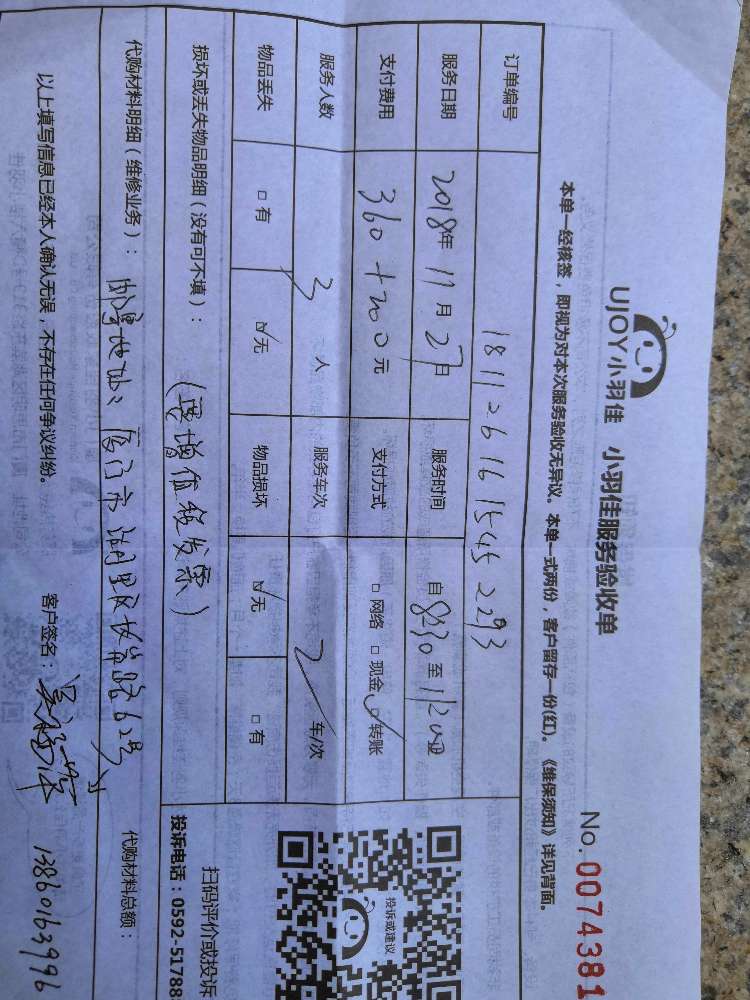 UJOY小羽佳 小羽佳服务验收单
No.0074381
本单一经核签，即视为对本次服务验收无异议。本单一式两份，客户留存一份(红)。《维保须知》详见背面。
订单编号 181126161545 2293
服务日期 2018年11月27日 服务时间 自8:30至11:200
支付费用 360+200元 支付方式 □网络 □现金 ☑转账
服务人数 3人 服务车次 2车/次
物品丢失 □有 ☑无 物品损坏 ☑无 □有
损坏或丢失物品明细(没有可不填)： (要增值税发票)
代购材料明细(维修业务)： 邮寄地址：厦门市湖里区长 路62号 代购材料总额：
以上填写信息已经本人确认无误，不存在任何争议纠纷。 客户签名： 13860163996
投诉或建议
扫码评价或投诉
投诉电话：0592-5178